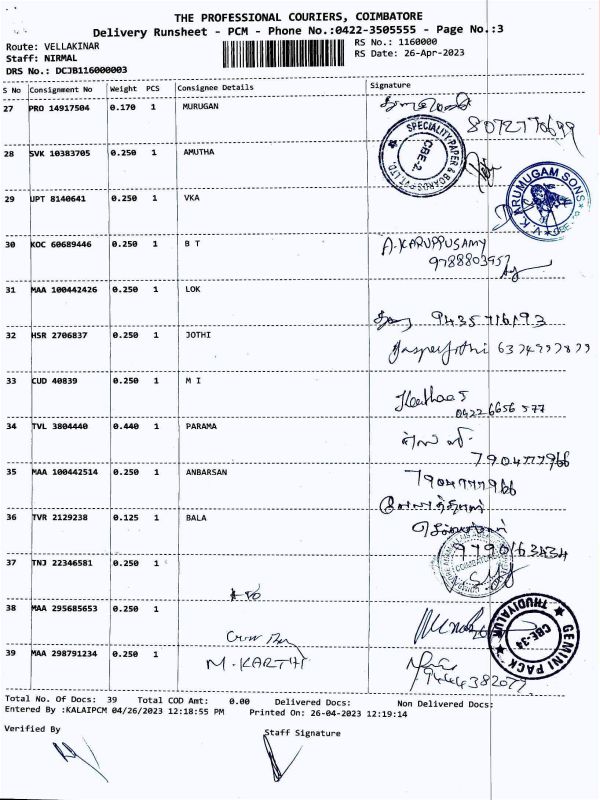 THE PROFESSIONAL COURIERS, COIMBATORE
Delivery Runsheet - PCM - Phone No.:0422-3505555 - Page No.:3
Route: VELLAKINAR
RS No.: 1160000
Staff: NIRMAL
RS Date: 26-Apr-2023
DRS No.: DCJB116000003
S No Consignment No Weight PCS Consignee Details Signature
27 PRO 14917504 0.170 1 MURUGAN
SPECIALITY PAPER & BOARDS PVT.LTD. CBE-2
28 SVK 10383705 0.250 1 AMUTHA
29 UPT 8140641 0.250 1 VKA
V.K ARUMUGAM SONS
30 KOC 60689446 0.250 1 B T A.KARUPPUSAMY
9788803957
31 MAA 100442426 0.250 1 LOK
9435716193
32 HSR 2706837 0.250 1 JOTHI
33 CUD 40839 0.250 1 M I
04226656 577
34 TVL 3804440 0.440 1 PARAMA
7904777966
35 MAA 100442514 0.250 1 ANBARSAN 7904777966
36 TVR 2129238 0.125 1 BALA
9790163434
37 TNJ 22346581 0.250 1
38 MAA 295685653 0.250 1
GEMINI PACK THUDIYALUR CBE-34
39 MAA 298791234 0.250 1 M.KARTHI
Total No. Of Docs: 39 Total COD Amt: 0.00 Delivered Docs: Non Delivered Docs:
Entered By :KALAIPCM 04/26/2023 12:18:55 PM Printed On: 26-04-2023 12:19:14
Verified By Staff Signature